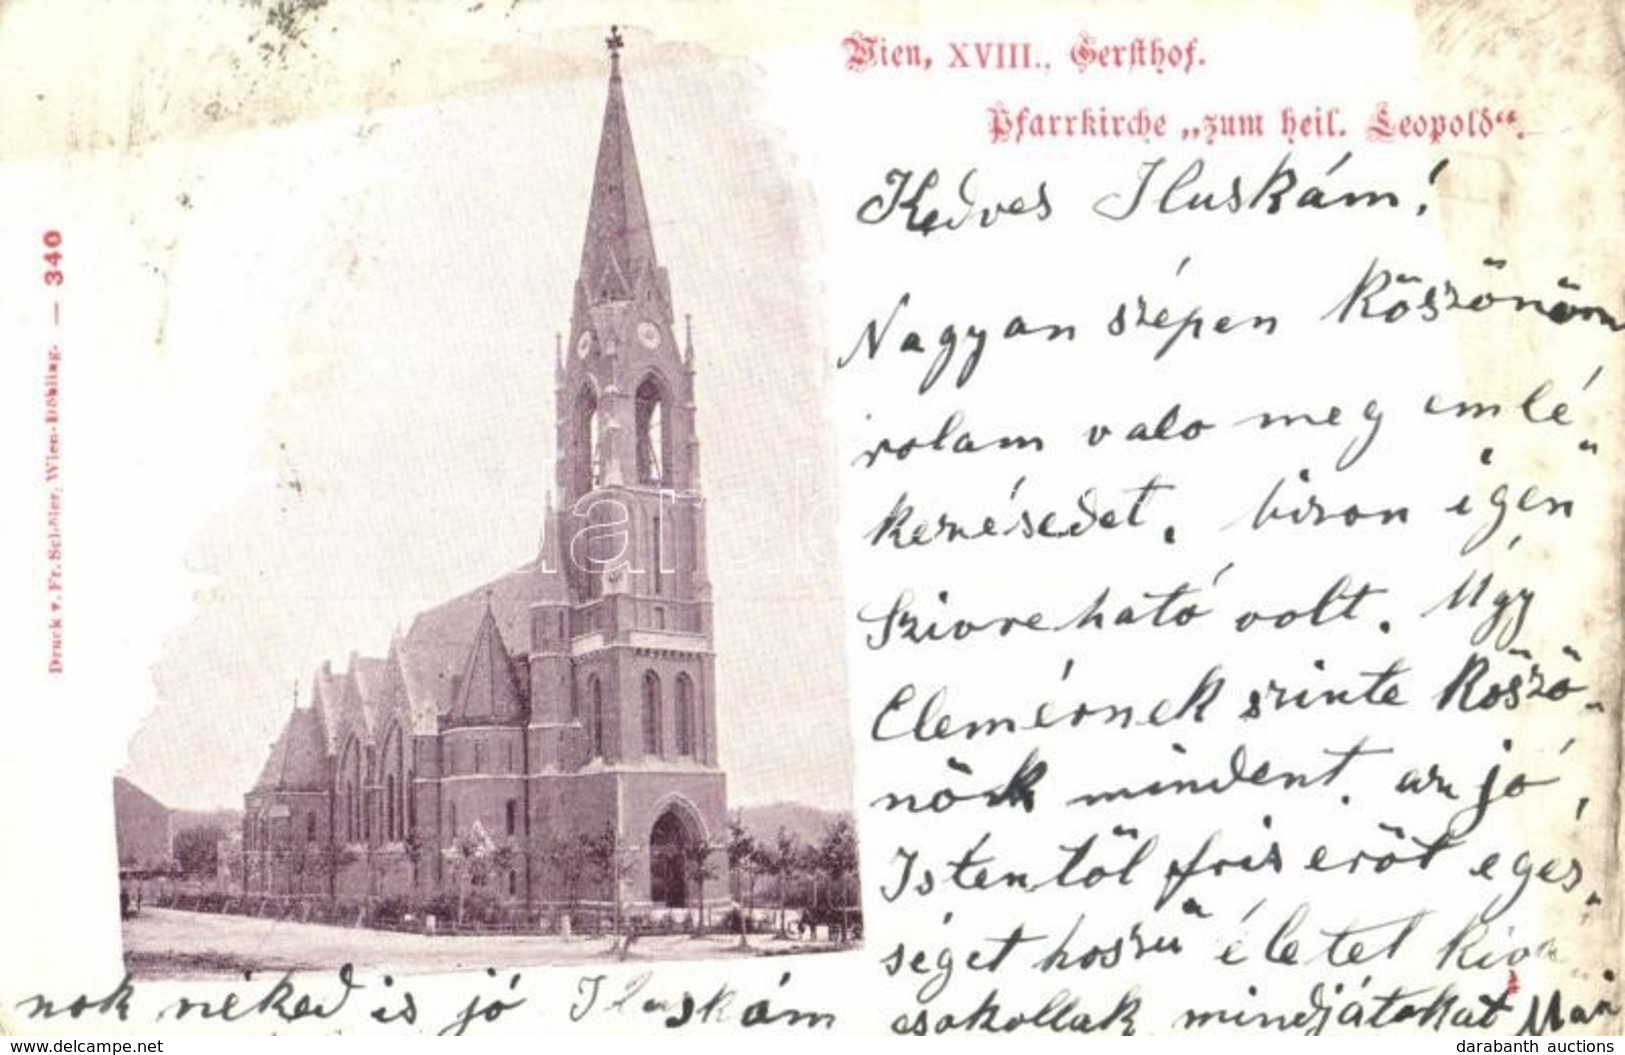 Wien, XVIII., Gersthof.
Pfarrkirche „zum heil. Leopold“.
Druck v. Fr. Seidler, Wien-Döbling. — 340
Kedves Iluskám!
Nagyan szépen Köszönöm
rolam valo meg emlé„
kezésedet. bizon igen
Szivreható volt. Ugy
Elemérnek szinte Köszö„
nök mindent. az jó
Istentöl fris eröt egés„
séget hoszu életet kivá
nok neked is jó Iluskám
csokollak mindjátokat
darabanth
© www.delcampe.net
darabanth auctions